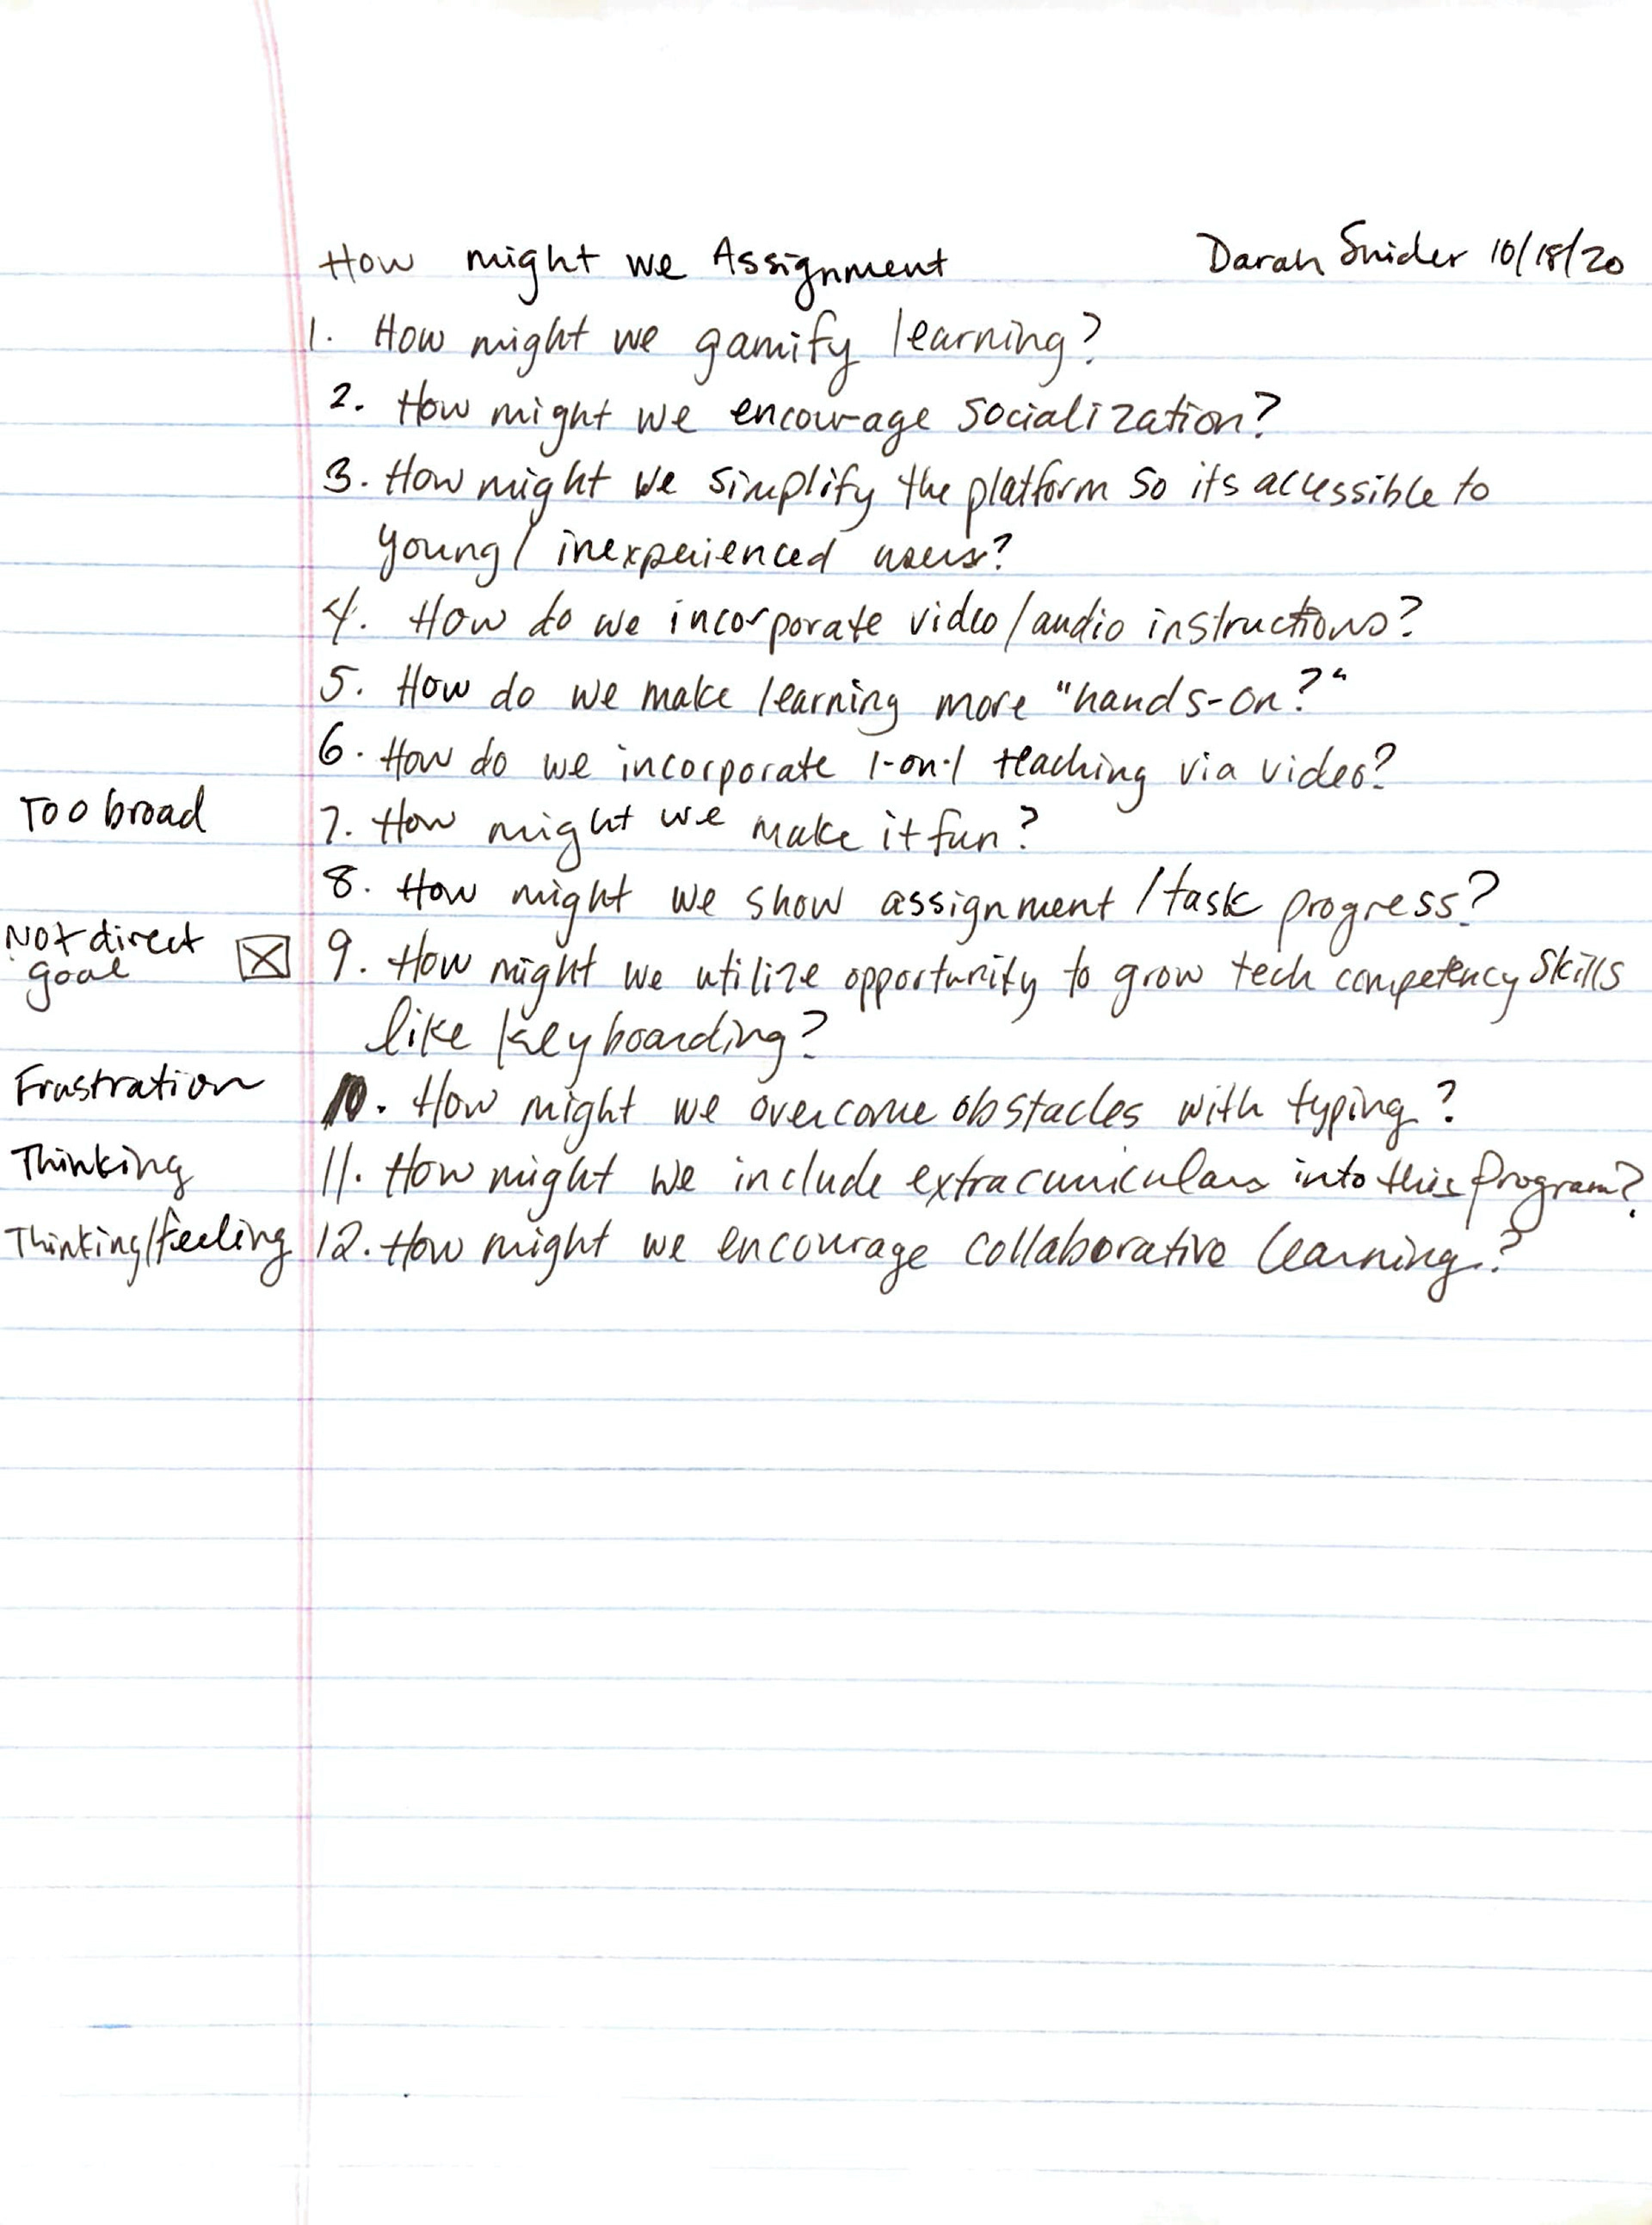 How might we Assignment Darah Snider 10/18/20
1. How might we gamify learning?
2. How might we encourage socialization?
3. How might we simplify the platform so its accessible to
young/inexperienced users?
4. How do we incorporate video/audio instructions?
5. How do we make learning more "hands-on?"
6. How do we incorporate 1-on-1 teaching via video?
Too broad 7. How might we make it fun?
8. How might we show assignment/task progress?
Not direct goal 9. How might we utilize opportunity to grow tech competency skills
like keyboarding?
Frustration 10. How might we overcome obstacles with typing?
Thinking 11. How might we include extracurriculars into this program?
Thinking/feeling 12. How might we encourage collaborative learning?